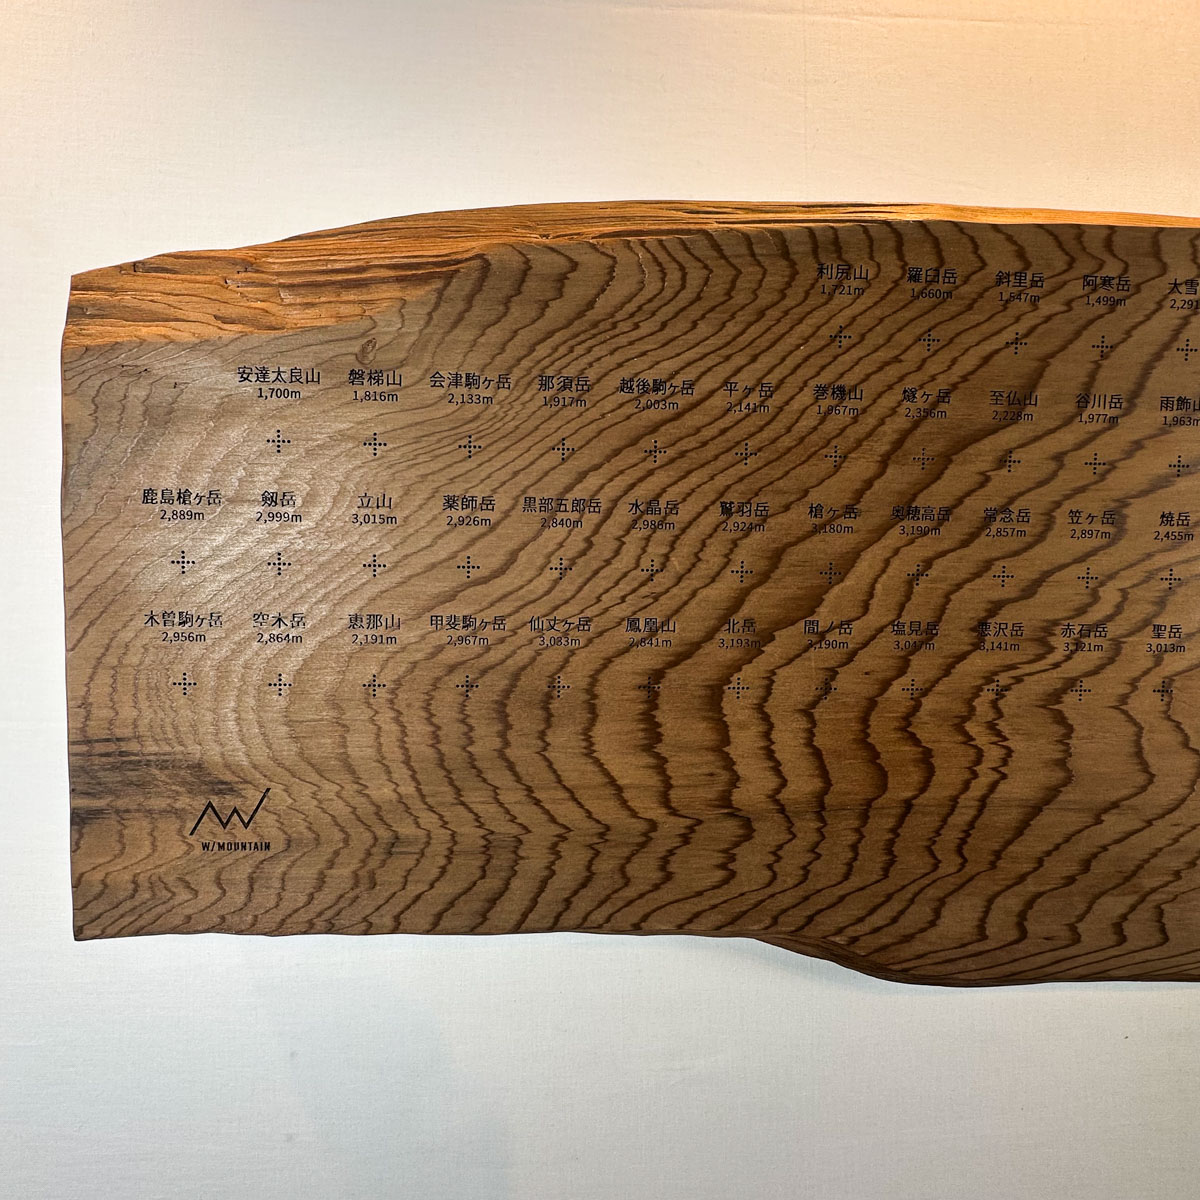 利尻山 羅臼岳 斜里岳 阿寒岳 大雪
1,721m 1,660m 1,547m 1,499m 2,291
安達太良山 磐梯山 会津駒ヶ岳 那須岳 越後駒ヶ岳 平ヶ岳 巻機山 燧ヶ岳 至仏山 谷川岳 雨飾山
1,700m 1,816m 2,133m 1,917m 2,003m 2,141m 1,967m 2,356m 2,228m 1,977m 1,963m
鹿島槍ヶ岳 剱岳 立山 薬師岳 黒部五郎岳 水晶岳 鷲羽岳 槍ヶ岳 奥穂高岳 常念岳 笠ヶ岳 焼岳
2,889m 2,999m 3,015m 2,926m 2,840m 2,986m 2,924m 3,180m 3,190m 2,857m 2,897m 2,455m
木曽駒ヶ岳 空木岳 恵那山 甲斐駒ヶ岳 仙丈ヶ岳 鳳凰山 北岳 間ノ岳 塩見岳 悪沢岳 赤石岳 聖岳
2,956m 2,864m 2,191m 2,967m 3,083m 2,841m 3,193m 3,190m 3,047m 3,141m 3,121m 3,013m
W/MOUNTAIN